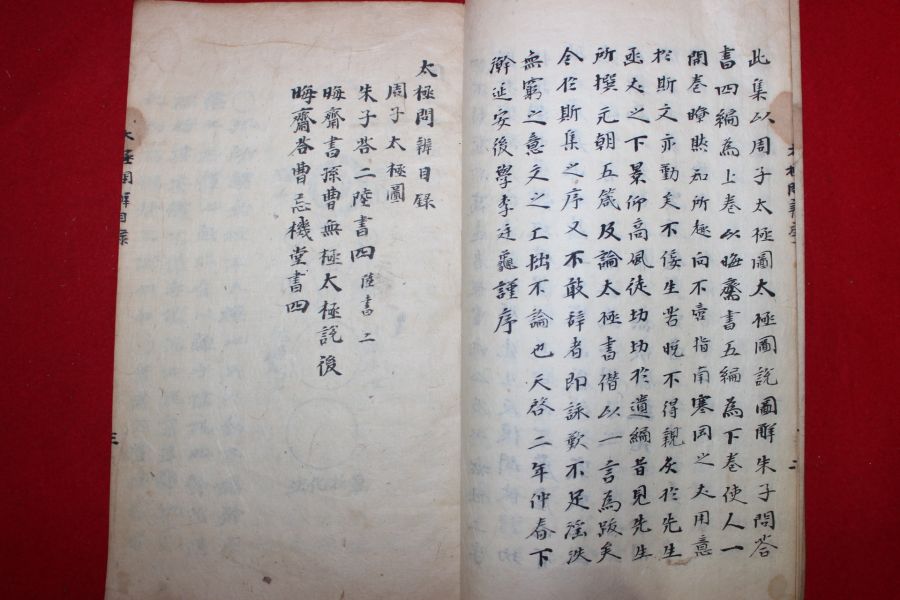 此集以周子太極圖太極圖說圖解朱子問答
書四編為上卷以晦齋書五編為下卷使人一
開卷瞭然知所趍向不啻指南寒岡之夫用意
於斯文亦勤矣不侫生苦晚不得親炙於先生
函丈之下景仰高風徒切切於遺編昔見先生
所撰元朝五箴及論太極書僭以一言為跋矣
今於斯集之序又不敢辭者即詠歎不足滛泆
無窮之意文之工拙不論也天啓二年仲春下
澣延安後學李廷龜謹序
太極問辨目錄
周子太極圖
朱子答二陸書四 陸書二
晦齋書孫曹無極太極說後
晦齋答曹忘機堂書四
太極問辨目錄
三
二